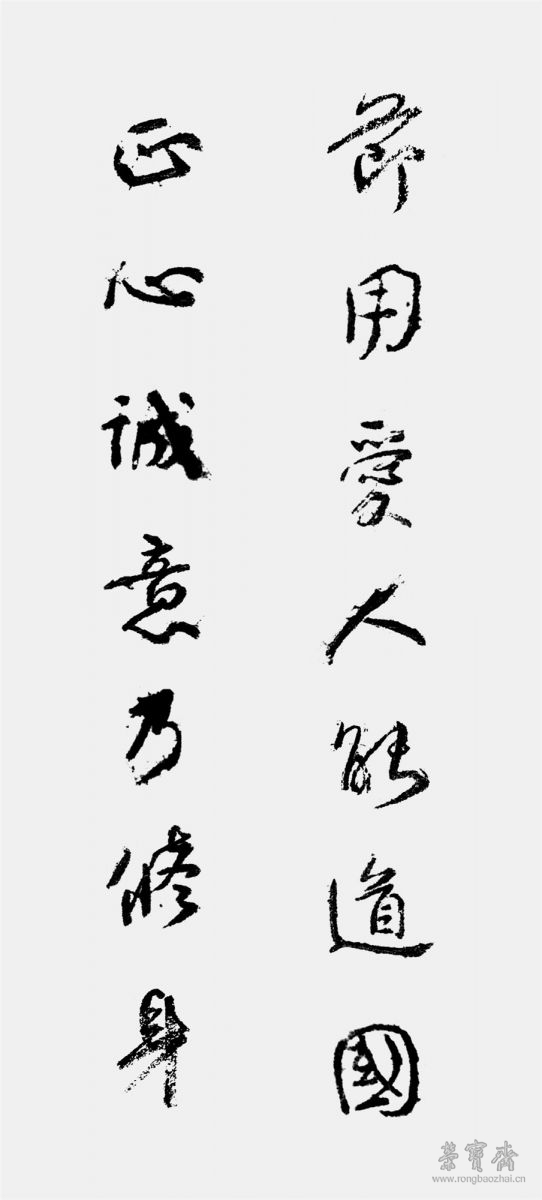 節用愛人能道國
正心誠意乃修身
榮寶齋
www.rongbaozhai.cn